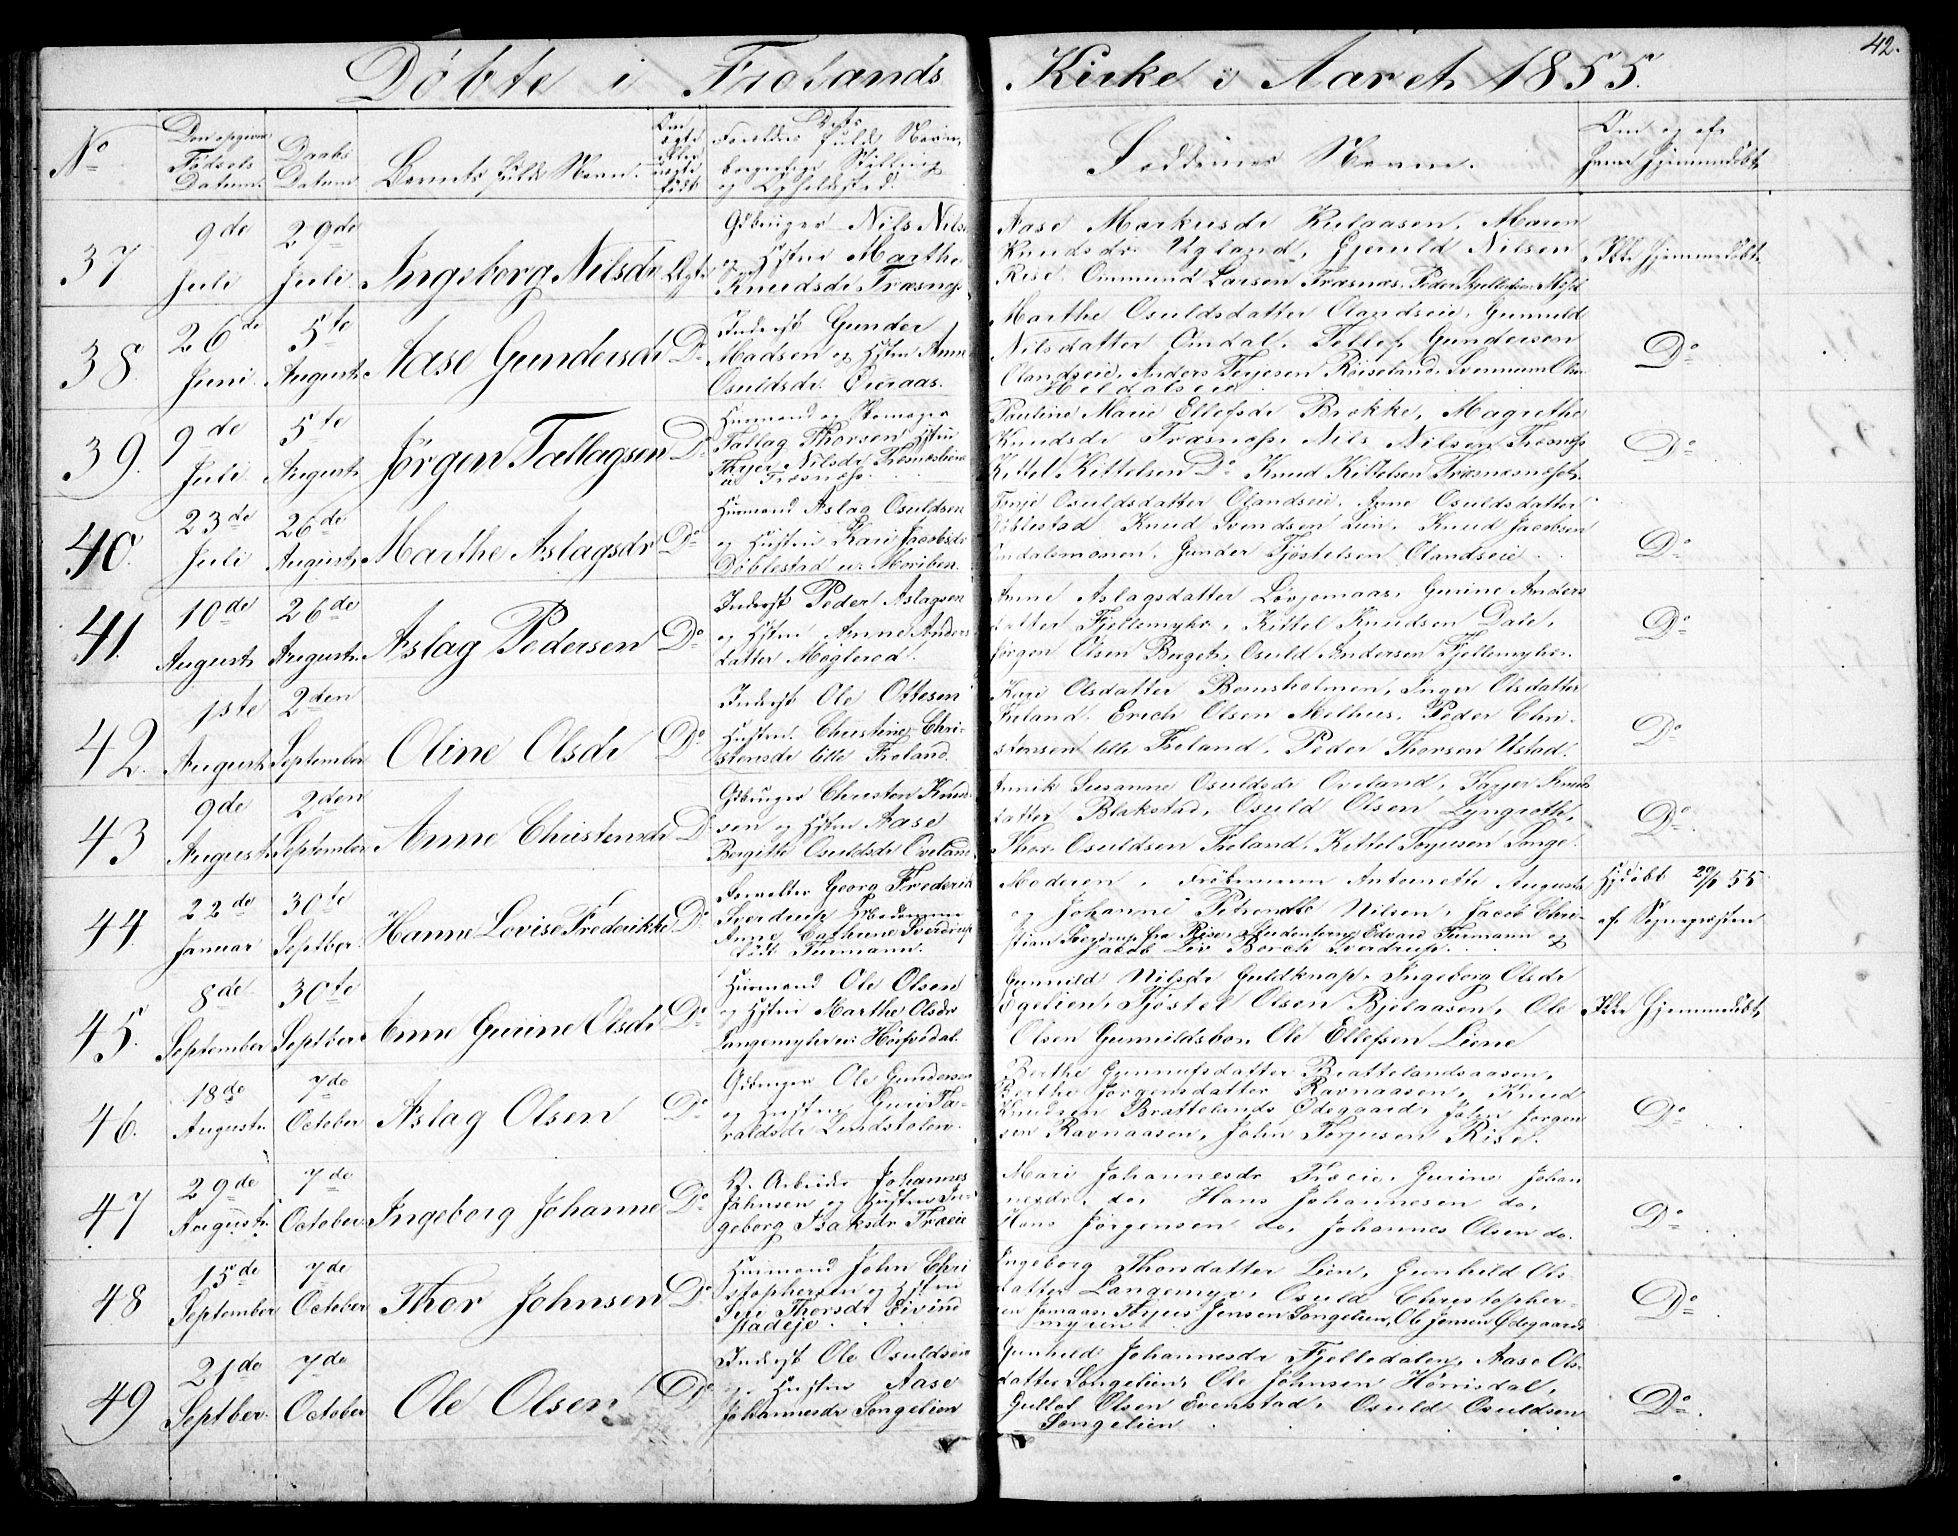 42.
Döbte i Frolands Kirke i Aaret 1855.
No
Den opgivne Födsels Datum.
Daabs Datum
Barnets fulde Navn.
Om ægte eller uægte födt
Forældres fulde Navn, borgerlige Stilling og Opholdssted.
Faddernes Navne.
Om og af hvem hjemmedöbt
37
9de Juli
29de Juli
Ingeborg Nilsdr
Ægte
Gbruger Nils Nils
og Hstru Marthe
Knudsdr Træsnæs
Aase Markusdr Rislaasen, Maren
Knudsdr. Ugland, Gjeruld Nilsen
Rise. Ommund Larsen Træsnæs. Peder
Ikke hjemmedöbt.
38.
26de Juni
5te August.
Aase Gundersdr
Do
Inderst Gunder
Madsen og Hstru Anne
Osuldsdr.
Marthe Osuldsdatter Olandseie, Gunuld
Nilsdatter Omdal. Tellef Gundersen
Olandseie, Anders Terjesen Röiseland, Svennum Olsn
Heldalseie
Do
39.
9de Juli
5te August
Jörgen Tallagsen
Do
Husmand og Skomager
Tallag Thorsen Hstru
Nilsdr
Træsnæs.
Pauline Marie Ellefsdr Brække, Magrethe
Knudsdr Træsnæs, Nils Nilsen Træsnæs
Kittel Kittelsen Do Knud Kittelsen
Do
40.
23de Juli
26de August
Marthe Aslagsdr
Do
Husmand Aslag Osuldsen
og Hustru Kari Jacobsdr
Döblestad u: Moriben.
Osuldsdatter Olandseie. Anne Osuldsdatter
Döblestad Knud Svendsen Lien. Knud Jacobsen
Omdalsmonen, Gunder Tjöstelsen Olandseie.
Do
41.
10de August
26de August.
Aslag Pedersen
Do
Inderst Peder Aslagsen
og Hstru Anne Anders
datter Möglerød.
Anne Aslagsdatter Gurine Anders
datter Fjellemyhr. Kittel Knudsen Dale,
Jörgen Olsen Berget, Osuld Andersen Fjellemyhr.
Do
42.
1ste August
2den September
Oline Olsdr
Do
Inderst Ole Ottesen
Hustru. Christine Chri-
stensdr lille Froland.
Kari Olsdatter Bomsholmen, Inger Olsdatter
Froland. Erich Olsen Melhus. Peder Chri-
stensen lille Froland. Peder Thorsen Ustad.
Do
43
9de August
2den September
Anne Christensdr
Do
Gbruger Christen Knud-
sen og Hstru Aase
Bergitte Osuldsdr Oveland
Annik Susanne Osuldsdr Oveland, Knuds
datter Blakstad, Osuld Olsen Lyngroth,
Thor Osuldsen Froland. Kittel Terjesen Songe.
Do
44.
22de Januar
30te Septber.
Hanne Lovise Frederikke
Do
Forvalter Georg Frederik
Sverdrup Madamme
Anne Cathrine Sverdrup
född Furmann.
Moderen, Frökenerne Antonette Augusta
og Johanne Petrentze Nilsen, Jacob Chri-
stian fra Risør Studenterne Edvard Furmann og
Jacob Liv Borch Sverdrup.
Hjdöbt 29/1 55
af Sognepresten
45.
8de September
30te Septber.
Anne Gurine Olsdr
Do
Husmand Ole Olsen
og Hstru Marthe Olsdr
Langemyhr u: Höifvedal.
Gunnild Nilsdr Guldknap. Ingeborg Olsdr
Egelien, Tjöstel Olsen Bjelaasen, Ole
Olsen Gunnildsbo. Ole Ellefsen Liene
Ikke hjemmedöbt
46.
18de August.
7de October
Aslag Olsen
Do
Gbruger Ole Gundersen
og Hustru Guri Ta-
raldsdr Lindstolen.
Berthe Gunnufsdatter Brattelandsaasen,
Berthe Jörgensdatter Ravnaasen, Knud
Knudsen Brattelands Ödegaard, John Jörgen
sen Ravnaasen, John Terjesen Rise.
Do
47
29de August.
7de October
Ingeborg Johanne
Do
J. Arbeider Johannes
Johnsen og Hustru In-
geborg Isaksdr Fraeie
Mari Johannesdr Fraeie. Gurine Johan
nesdr. do. Hans Johannesen do.
Hans Jörgensen do, Johannes Olsen do.
Do
48
15de September
7de October
Thor Johnsen
Do
Husmand John Chri
stophersen og Hstru
Siri Thorsdr Eivind
stadeje.
Ingeborg Thorsdatter Lien, Gunhild Ols-
datter Langemyr. Osuld Christopher-
sen Terjus Jensen Songelien, Ole Jensen Ödegaards
myren
Do
49
21de Septber.
7de October
Ole Olsen
Do
Inderst Ole Osuldsen
og Hustru Aase
Johannesdr Songelien
Gunhild Johannesdr Fjelledalen, Aase Ols-
datter Songelien, Ole Johnsen Hörrisdal,
Gullof Olsen Evenstad, Osuld Osuldsen
Songelien
Do